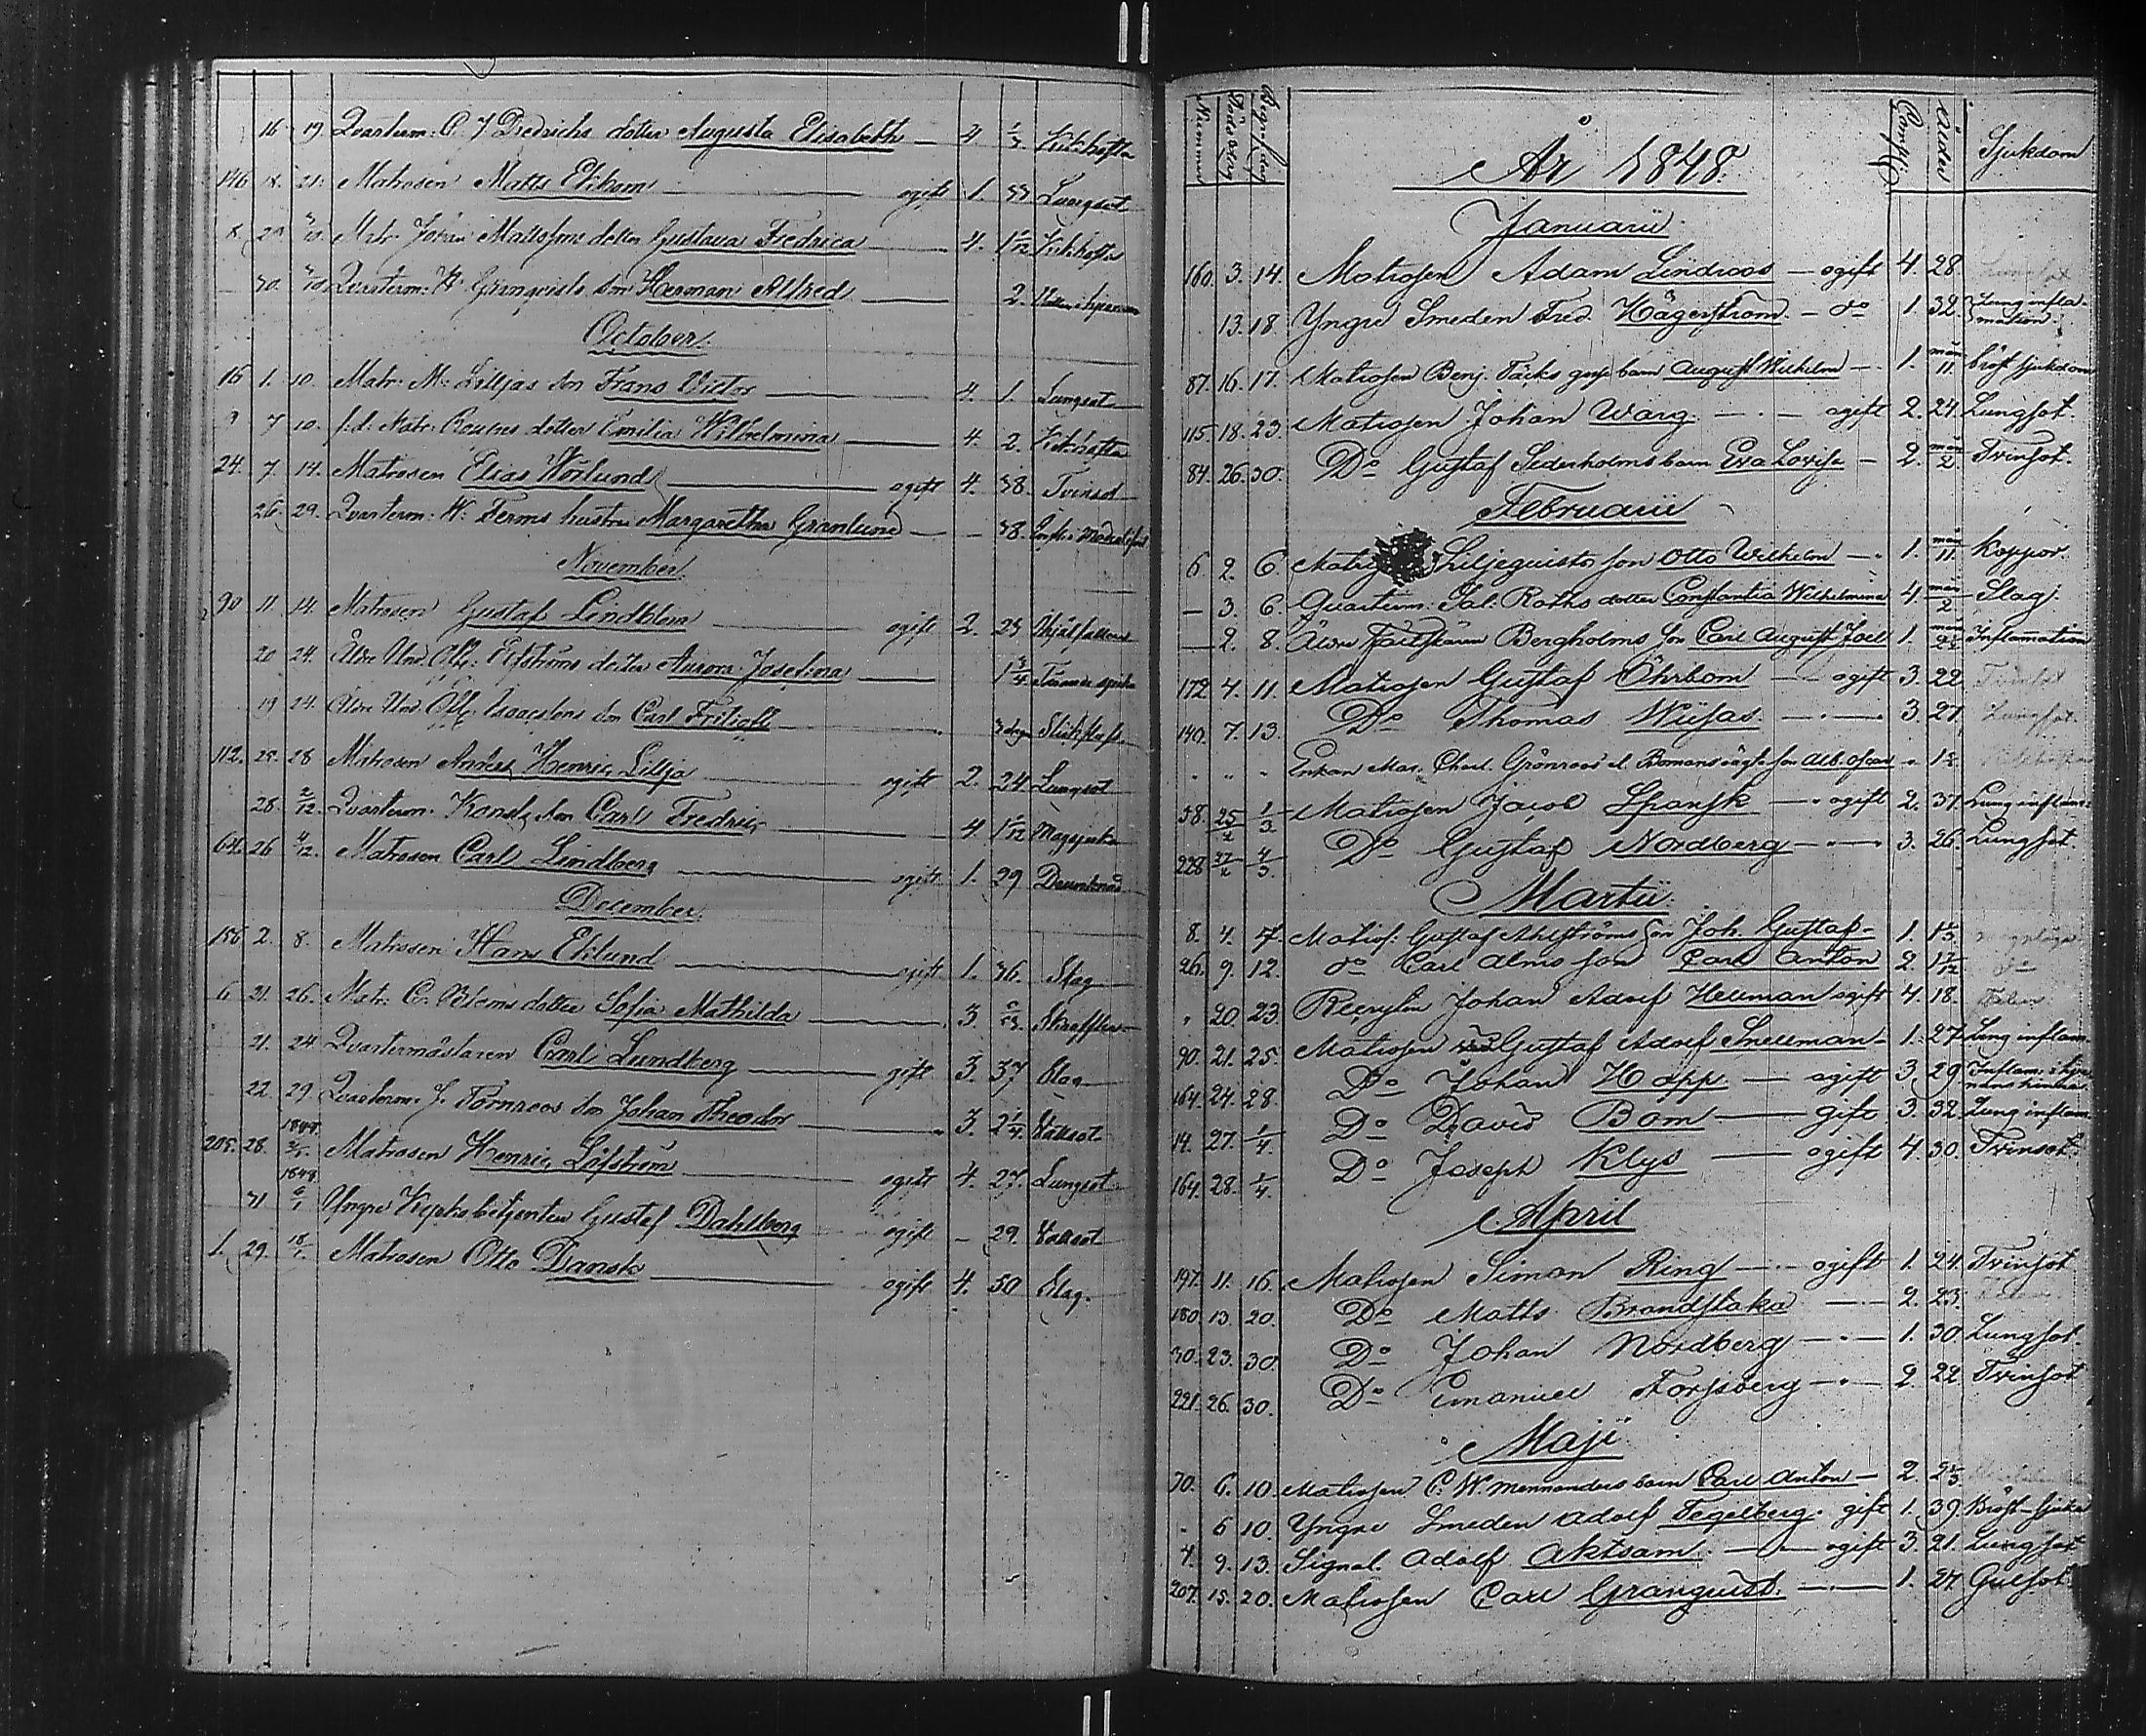 16 19 Qvarterm: C. J. Diedrichs dotter Augusta Elisabeth — 4 1/3 Kikhosta
146 18. 21. Matrosen Matts Ekbom — ogift 1. 33 Lungsot
8 Matr. Johan Mattssons dotter Gustava Fredrica — 4. 1 1/12 Kikhosta
30. Qvarterm: Granqvists son Herman Alfred — 2.
October.
16 1. 10. Matr: M: Liljas son Frans Victor — 4. 1. Lungsot
9 7 10. f.d. Matr: dotter Emilia Wilhelmina — 4. 2. Kikhosta
24. 7. 14. Matrosen Elias Worlund — ogift 4. 38. Tvinsot
26. 29. Qvarterm: W. Ferms hustru Margaretha Granlund — – 38.
November.
90 11. 14. Matrosen Gustaf Lindblom — ogift 2. 23 Ihjälfallen
20 24. Äldre Und. Off: Elfströms dotter Aurora Josefina — 1 3/4
19 24. Äldre Und. Off: Isaacssons son Carl Fritioff 3 dagar Slidslag
112. 25. 28 Matrosen Anders Henric Lilja — ogift 2. 24 Lungsot
28. 2/12. Qvarterm. son Carl Fredric — 4 1 1/12 Magsjuka
64. 26 4/12. Matrosen Carl Lindberg — ogift 1. 29
December.
156 2. 8. Matrosen Hans Eklund — gift. 1. 36. Slag
6 21. 26. Matr: C. Bloms dotter Sofia Mathilda — 3. Skrofler
21. 24 Qvartermästaren Carl Lundberg — gift 3. 37 Slag
22. 29. Qvarterm. J. Törnroos son Johan Theodor — 3. 2 1/4 Vattsot
205. 28. 1848 Matrosen Henric Löfström — ogift 4. 27. Lungsot
31 1848 6/1 Yngre Gustaf Dahlberg — ogift – 29. Vattsot
1. 29. 18/1. Matrosen Otto Dansk — ogift 4. 50 Slag.
Nummer Dödsdag Begrafdag Comp. Ålder Sjukdom
År 1848.
Januarii.
160. 3. 14. Matrosen Adam Lindroos — ogift 4. 28. Lungsot
13. 18. Yngre Smeden Fred. Hägerström — do 1. 32. Lung infla-
mation.
87. 16. 17. Matrosen Benj. Täcks barn August Wilhelm — 1. mån 11. bröst sjukdom
115. 18. 23. Matrosen Johan Warg. — ogift 2. 24. Lungsot.
84. 26. 30. Do Gustaf Sederholms barn Eva Lovisa — 2. mån 2 Tvinsot.
Februarii
6. 2. 6. Liljequists son Otto Wilhelm — 1. mån 11. Koppor.
— 3. 6. Quarterm: Sal: Roths dotter Constantia Wilhelmina 4. mån 2 Slag.
— 2. 8. Äldre Bergholms son Carl August Joel 1. mån Inflammation
172. 4. 11. Matrosen Gustaf Öhrbom — ogift 3. 22. Tvinsot
140. 7. 13. Do Thomas Wiisas — 3. 27. Lungsot.
" " " Enkan Mar. Charl. Grönroos oägta son Alb. Oscar
38. 25/2 1/3 Matrosen Jacob Spansk — ogift 2. 31. Lung inflam:
228. 27/2 4/3. Do Gustaf Nordberg — 3. 26. Lungsot.
Martii.
8. 4. 7. Matros: Gustaf Ahlströms son Joh. Gustaf — 1.
26. 9. 12. do Carl Alms son Carl Anton 2. do
" 20. 23. Recryten Johan Adolf Hellman ogift 4. 18. Feber
90. 21. 25. Matrosen Gustaf Adolf Snellman — 1. 27. Lung inflam.
164. 24. 28. Do Johan Hopp — ogift 3. 29.
14. 27. 1/4. Do David Bom — gift 3. 32. Lung inflam.
164. 28. 1/4. Do Joseph Klys — ogift 4. 30. Tvinsot.
April
197. 11. 16. Matrosen Simon Ring — ogift 1. 24. Tvinsot
180. 13. 20. Do Matts Brandstaka — 2. 23.
30. 23. 30. Do Johan Nordberg — 1. 30. Lungsot.
221. 26. 30. Do Emanuel Forssberg — 2. 22 Tvinsot
Maji
70. 6. 10. Matrosen C. W. Mennanders barn Carl Anton — 2.
" 6 10. Yngre Smeden Adolf Tegelberg. gift 1. 39. Bröst-sjuka
4. 9. 13. Signal. Adolf Aktsam. — ogift 3. 21. Lungsot
207. 15. 20. Matrosen Carl Granquist. — 1. 27. Gulsot